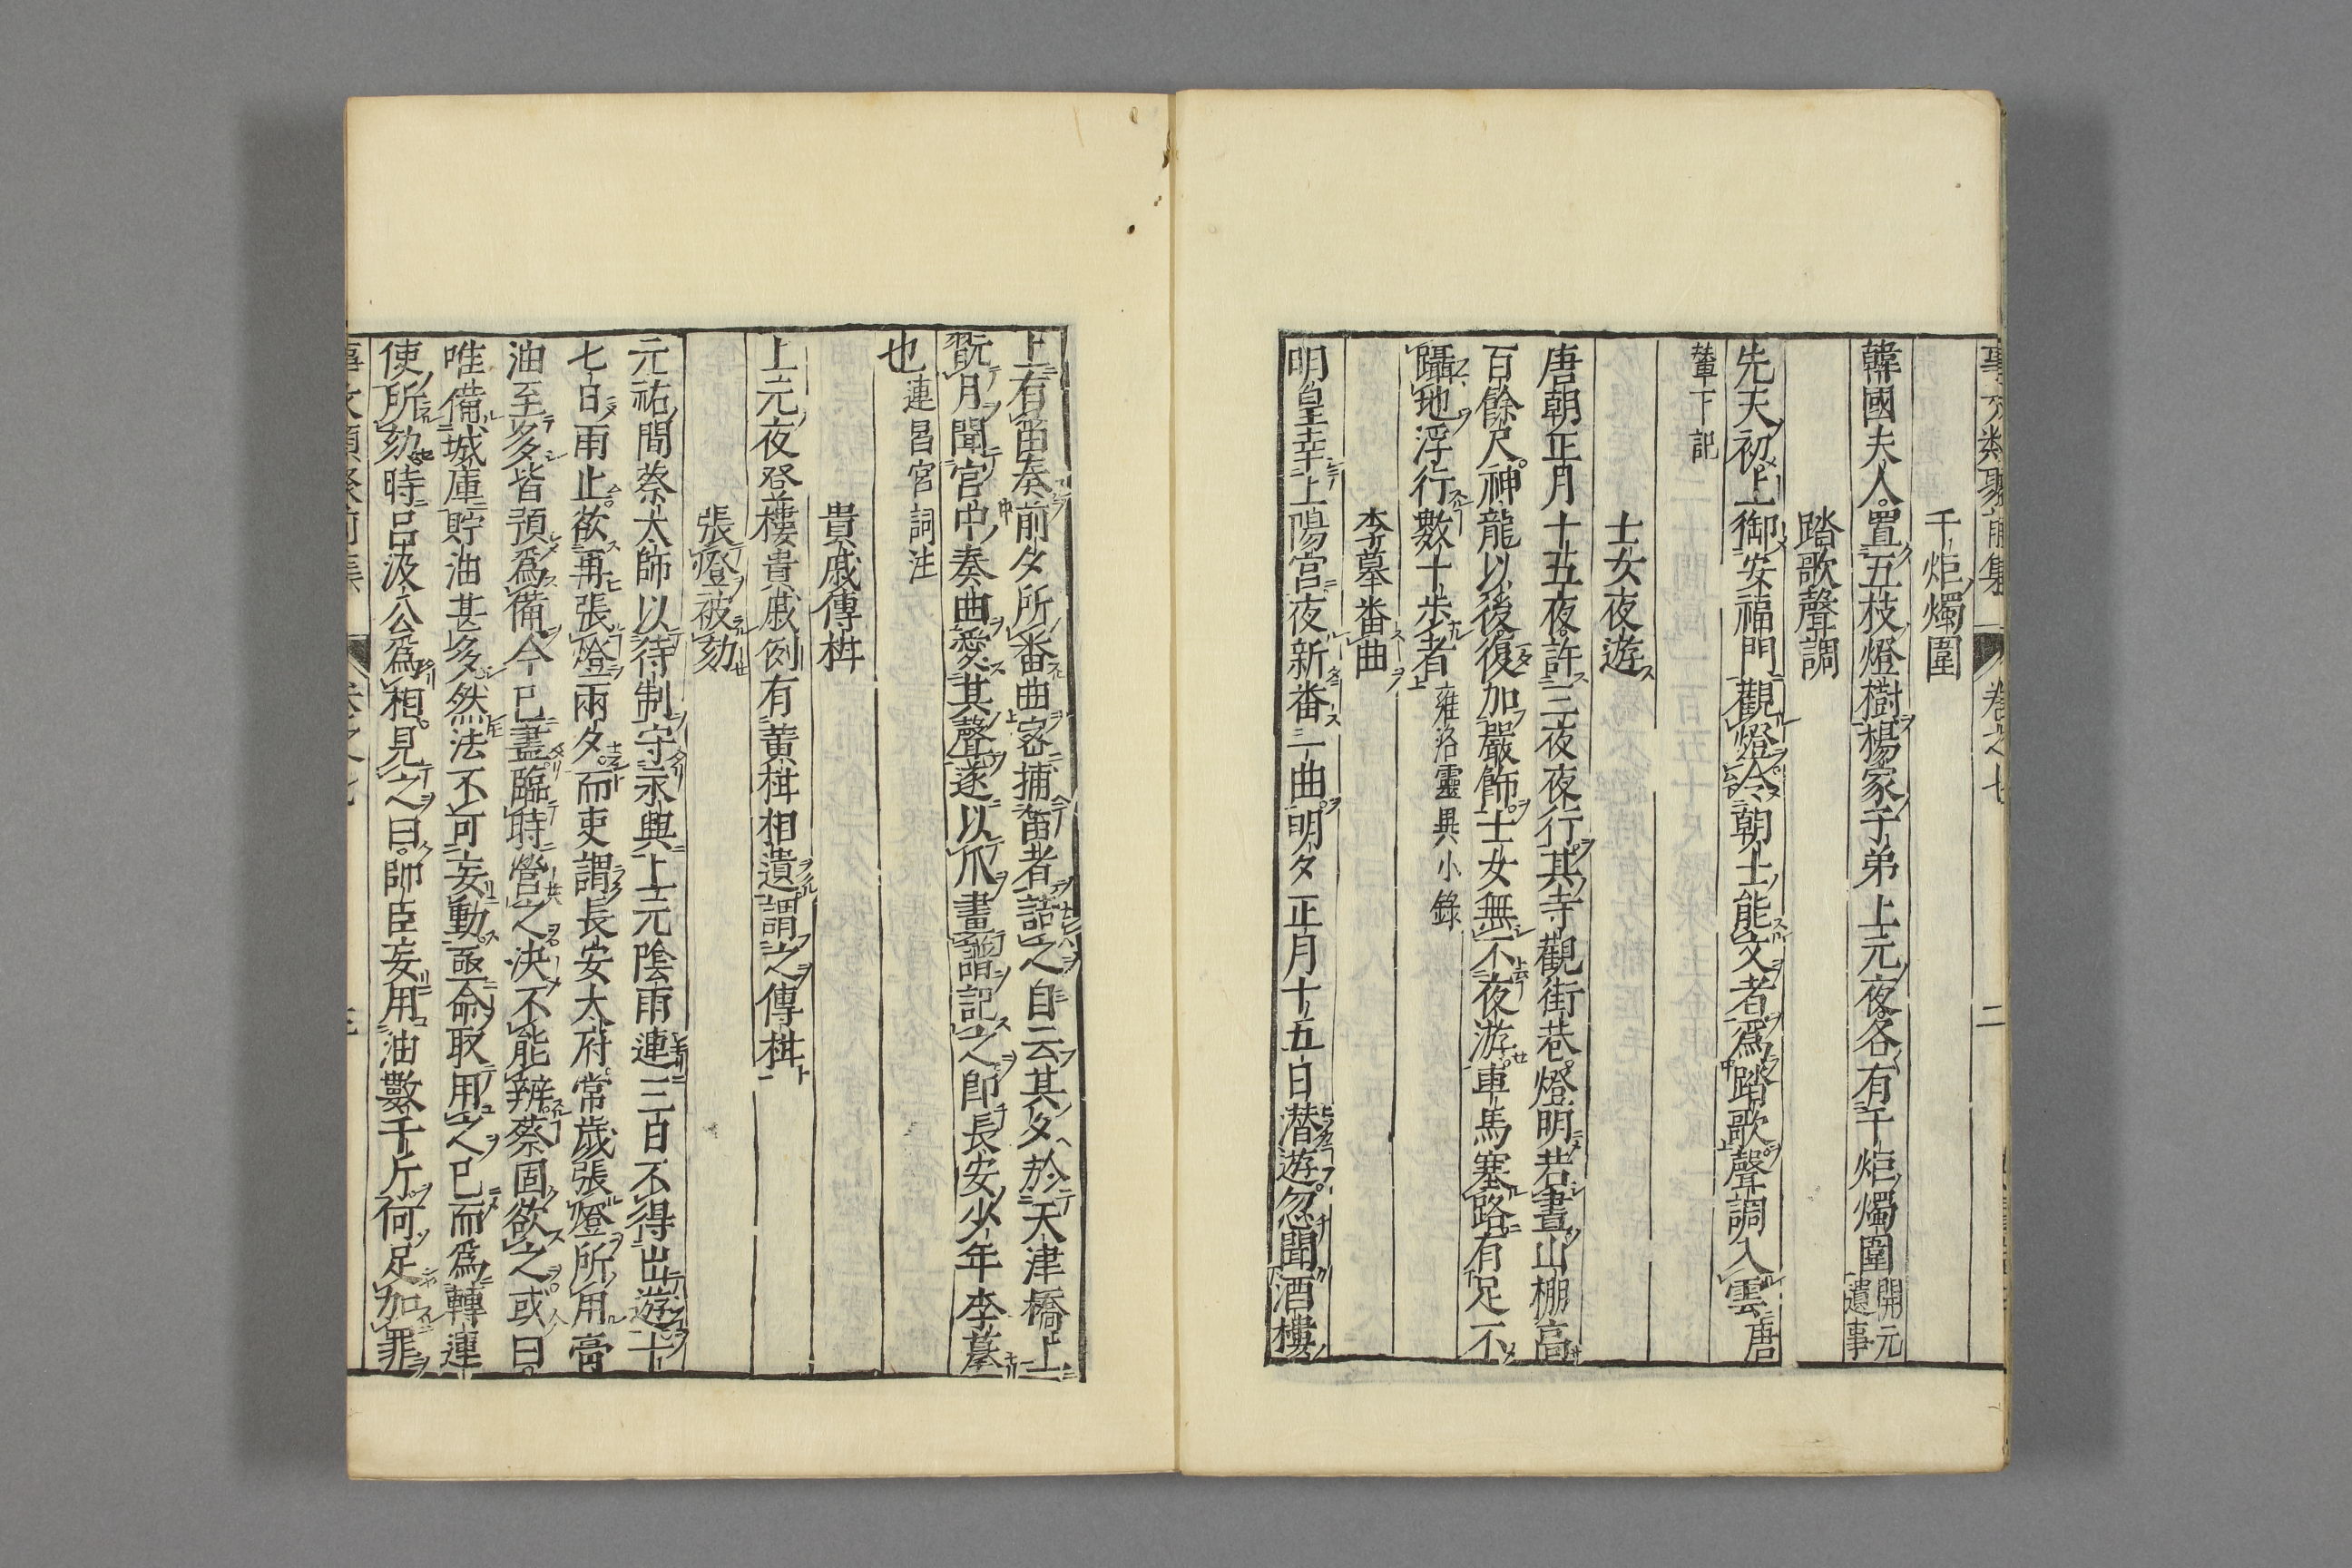 事文類聚前集 卷之七 二
千炬燭圍
韓國夫人置五枝燈樹楊家子弟上元夜各有千炬燭圍開元遺事
踏歌聲調
先天初上御安福門觀燈令朝士能文者爲踏歌聲調入雲唐
輦下記
士女夜遊
唐朝正月十五夜許三夜夜行其寺觀街巷燈明若晝山棚高
百餘尺神龍以後復加嚴飾士女無不夜游車馬塞路有足不
躡地浮行數十步者雍洛靈異小錄
李摹畨曲
明皇幸上陽宮夜新畨一曲明夕正月十五日潜遊忽聞酒樓
上有笛奏前夕所畨曲密捕笛者詰之自云其夕於天津橋上
翫月聞宮中奏曲愛其聲遂以爪畫譜記之卽長安少年李摹
也連昌宮詞注
貴戚傳柑
上元夜登樓貴戚例有黃柑相遺謂之傳柑
張燈被劾
元祐間蔡太師以待制守永興上元陰雨連三百不得出遊十
七日雨止欲再張燈兩夕而吏謂長安太府常歲張燈所用膏
油至多皆預爲備今已盡臨時營之決不能辨蔡固欲之或曰
唯備城庫貯油甚多然法不可妄動亟命取用之已而爲轉運
使所劾時呂汲公爲相見之曰帥臣妄用油數千斤何足加罪
事文類聚前集 卷之七 三